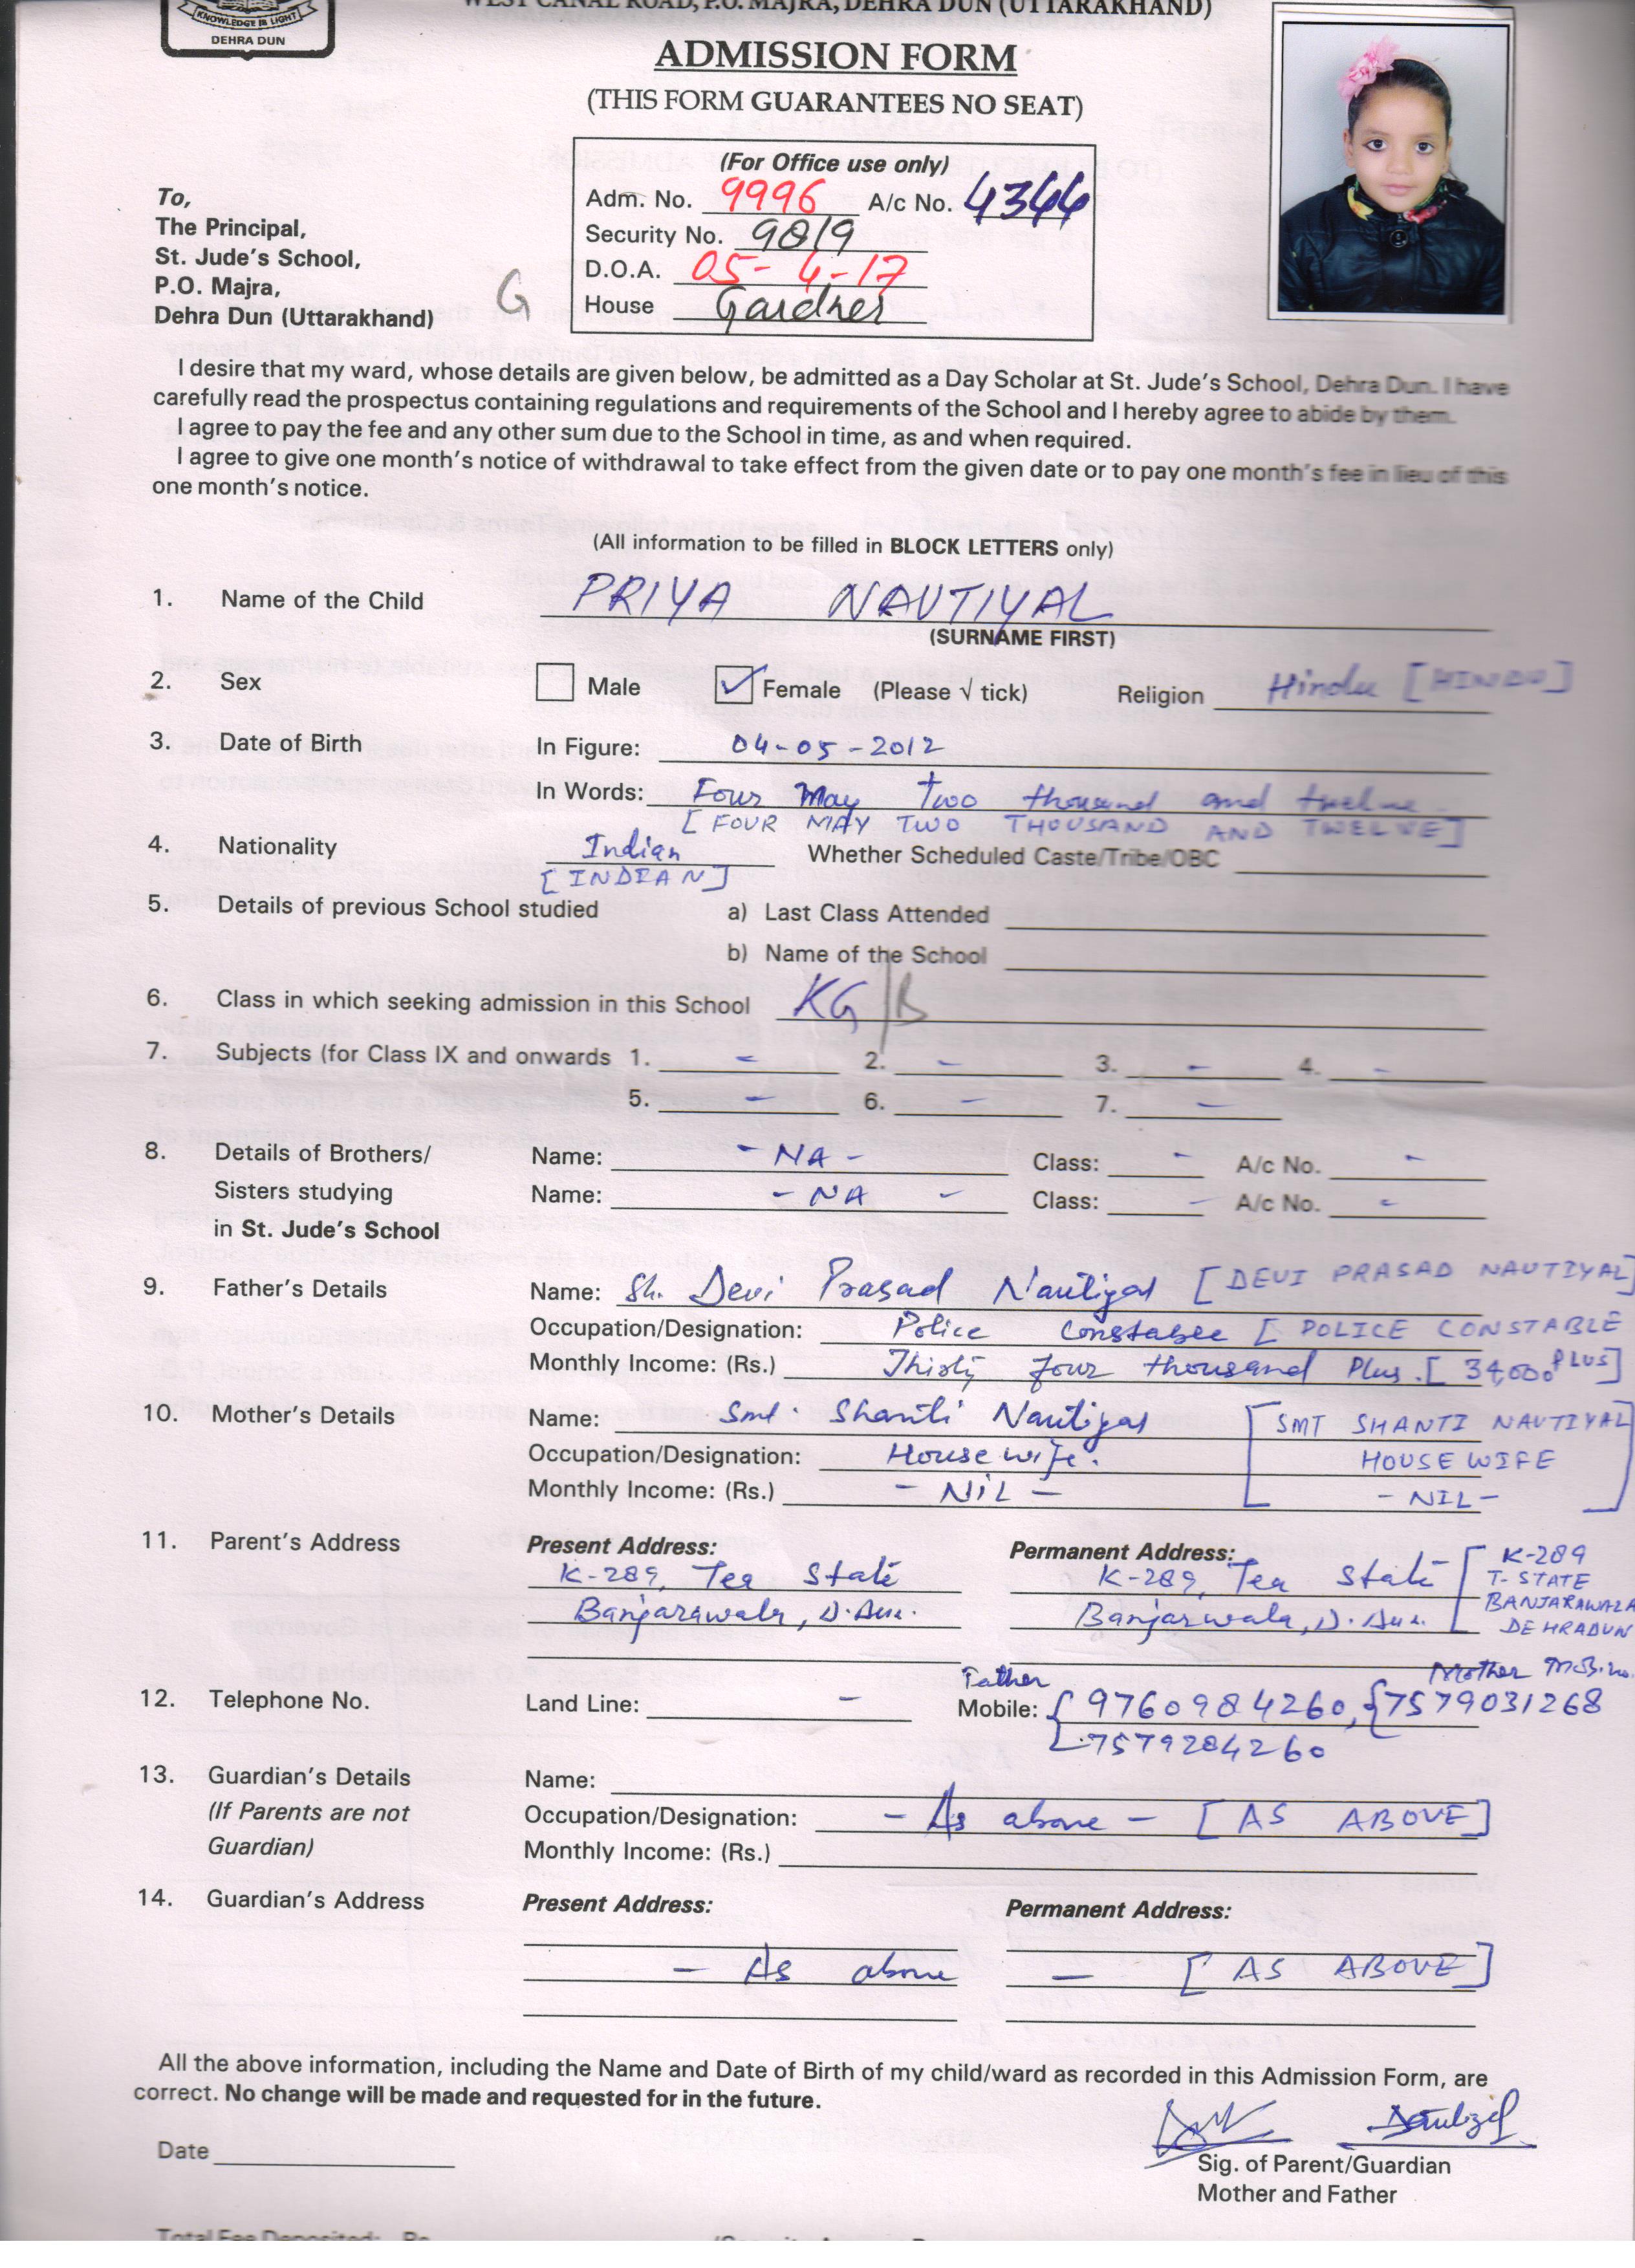 KNOWLEDGE IS LIGHT
DEHRA DUN
WEST CANAL ROAD, P.O. MAJRA, DEHRA DUN (UTTARAKHAND)
ADMISSION FORM
(THIS FORM GUARANTEES NO SEAT)
(For Office use only)
Adm. No. 9996 A/c No. 4344
Security No. 9819
D.O.A. 05-4-17
House Gardner
To,
The Principal,
St. Jude's School,
P.O. Majra,
Dehra Dun (Uttarakhand)
G
I desire that my ward, whose details are given below, be admitted as a Day Scholar at St. Jude's School, Dehra Dun. I have
carefully read the prospectus containing regulations and requirements of the School and I hereby agree to abide by them.
I agree to pay the fee and any other sum due to the School in time, as and when required.
I agree to give one month's notice of withdrawal to take effect from the given date or to pay one month's fee in lieu of this
one month's notice.
(All information to be filled in BLOCK LETTERS only)
1. Name of the Child PRIYA NAUTIYAL
(SURNAME FIRST)
2. Sex Male ✓ Female (Please √ tick) Religion Hindu [HINDU]
3. Date of Birth In Figure: 04-05-2012
In Words: Four May Two thousand and twelve
[FOUR MAY TWO THOUSAND AND TWELVE]
4. Nationality Indian Whether Scheduled Caste/Tribe/OBC
[INDIAN]
5. Details of previous School studied a) Last Class Attended
b) Name of the School
6. Class in which seeking admission in this School KG/B
7. Subjects (for Class IX and onwards 1. - 2. - 3. - 4. -
5. - 6. - 7. -
8. Details of Brothers/ Name: - NA - Class: - A/c No. -
Sisters studying Name: - NA - Class: - A/c No. -
in St. Jude's School
9. Father's Details Name: Sh. Devi Prasad Nautiyal [DEVI PRASAD NAUTIYAL]
Occupation/Designation: Police Constable [POLICE CONSTABLE
Monthly Income: (Rs.) Thirty four thousand Plus. [34,000 PLUS]
10. Mother's Details Name: Smt. Shanti Nautiyal [SMT SHANTI NAUTIYAL]
Occupation/Designation: House wife. HOUSE WIFE
Monthly Income: (Rs.) - NIL - - NIL -
11. Parent's Address Present Address: Permanent Address: [K-289
K-289, Tea State K-289, Tea State T-STATE
Banjarawala, D.Dun. Banjarwala, D.Dun. BANJARAWALA
DEHRADUN
Father Mother Mob.no.
12. Telephone No. Land Line: - Mobile: {9760984260, {7579031268
7579284260
13. Guardian's Details Name:
(If Parents are not Occupation/Designation: - As above - [AS ABOVE]
Guardian) Monthly Income: (Rs.)
14. Guardian's Address Present Address: Permanent Address:
- As above - [AS ABOVE]
All the above information, including the Name and Date of Birth of my child/ward as recorded in this Admission Form, are
correct. No change will be made and requested for in the future.
Date
Sig. of Parent/Guardian
Mother and Father
Total Fee Deposited: Rs.